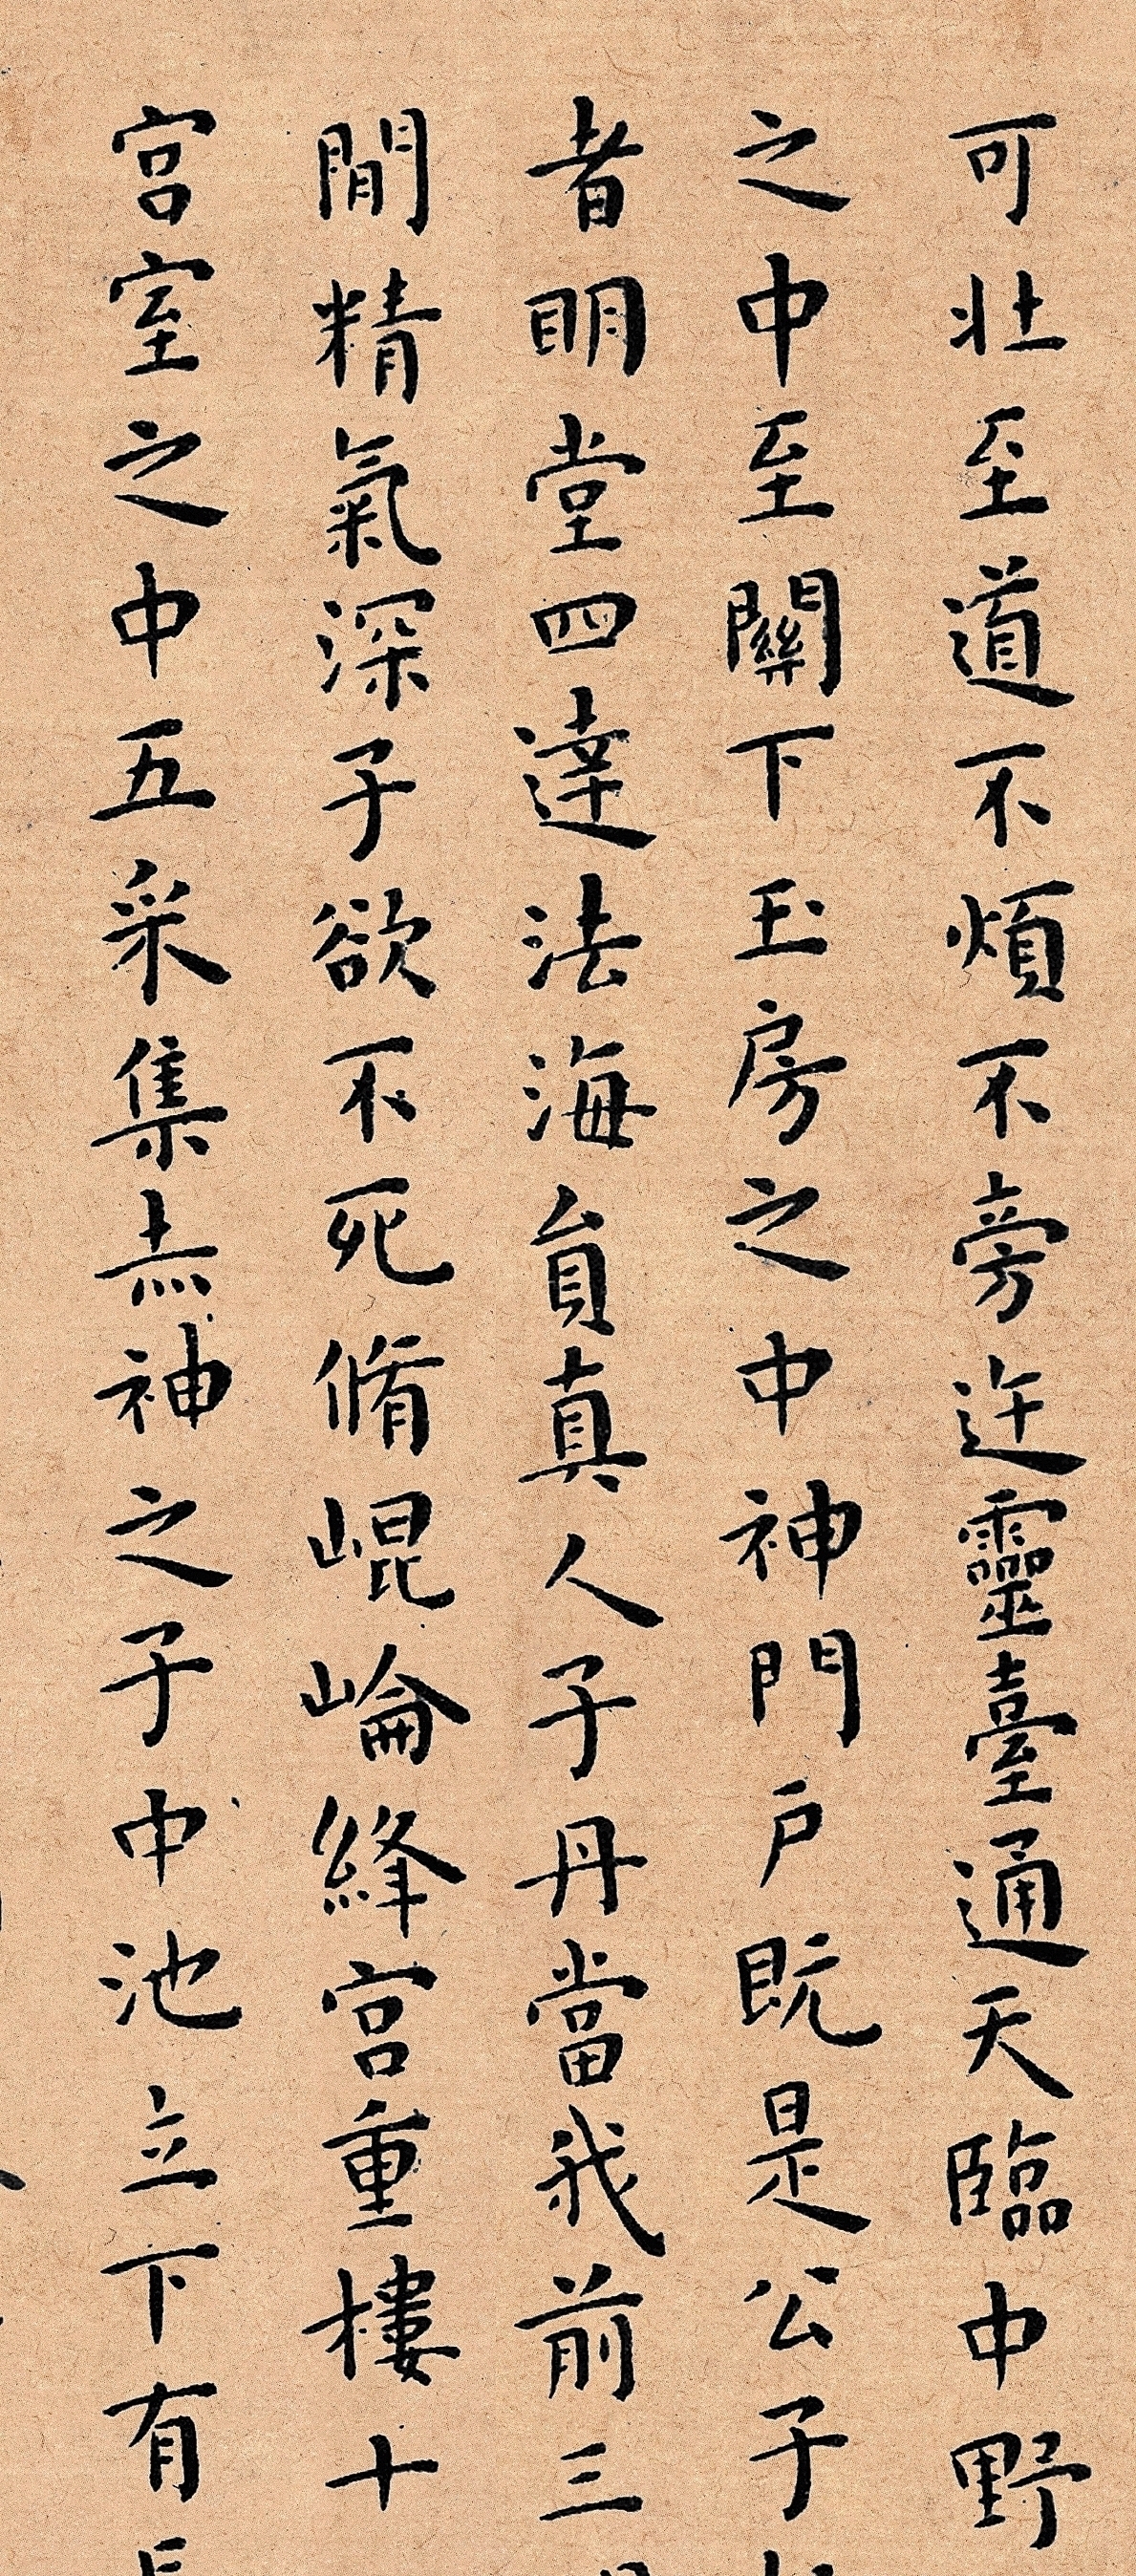 可壯至道不煩不旁迕靈臺通天臨中野
之中至關下玉房之中神門戶既是公子
者明堂四達法海員真人子丹當我前三
閒精氣深子欲不死脩崐崘絳宮重樓十
宮室之中五采集赤神之子中池立下有